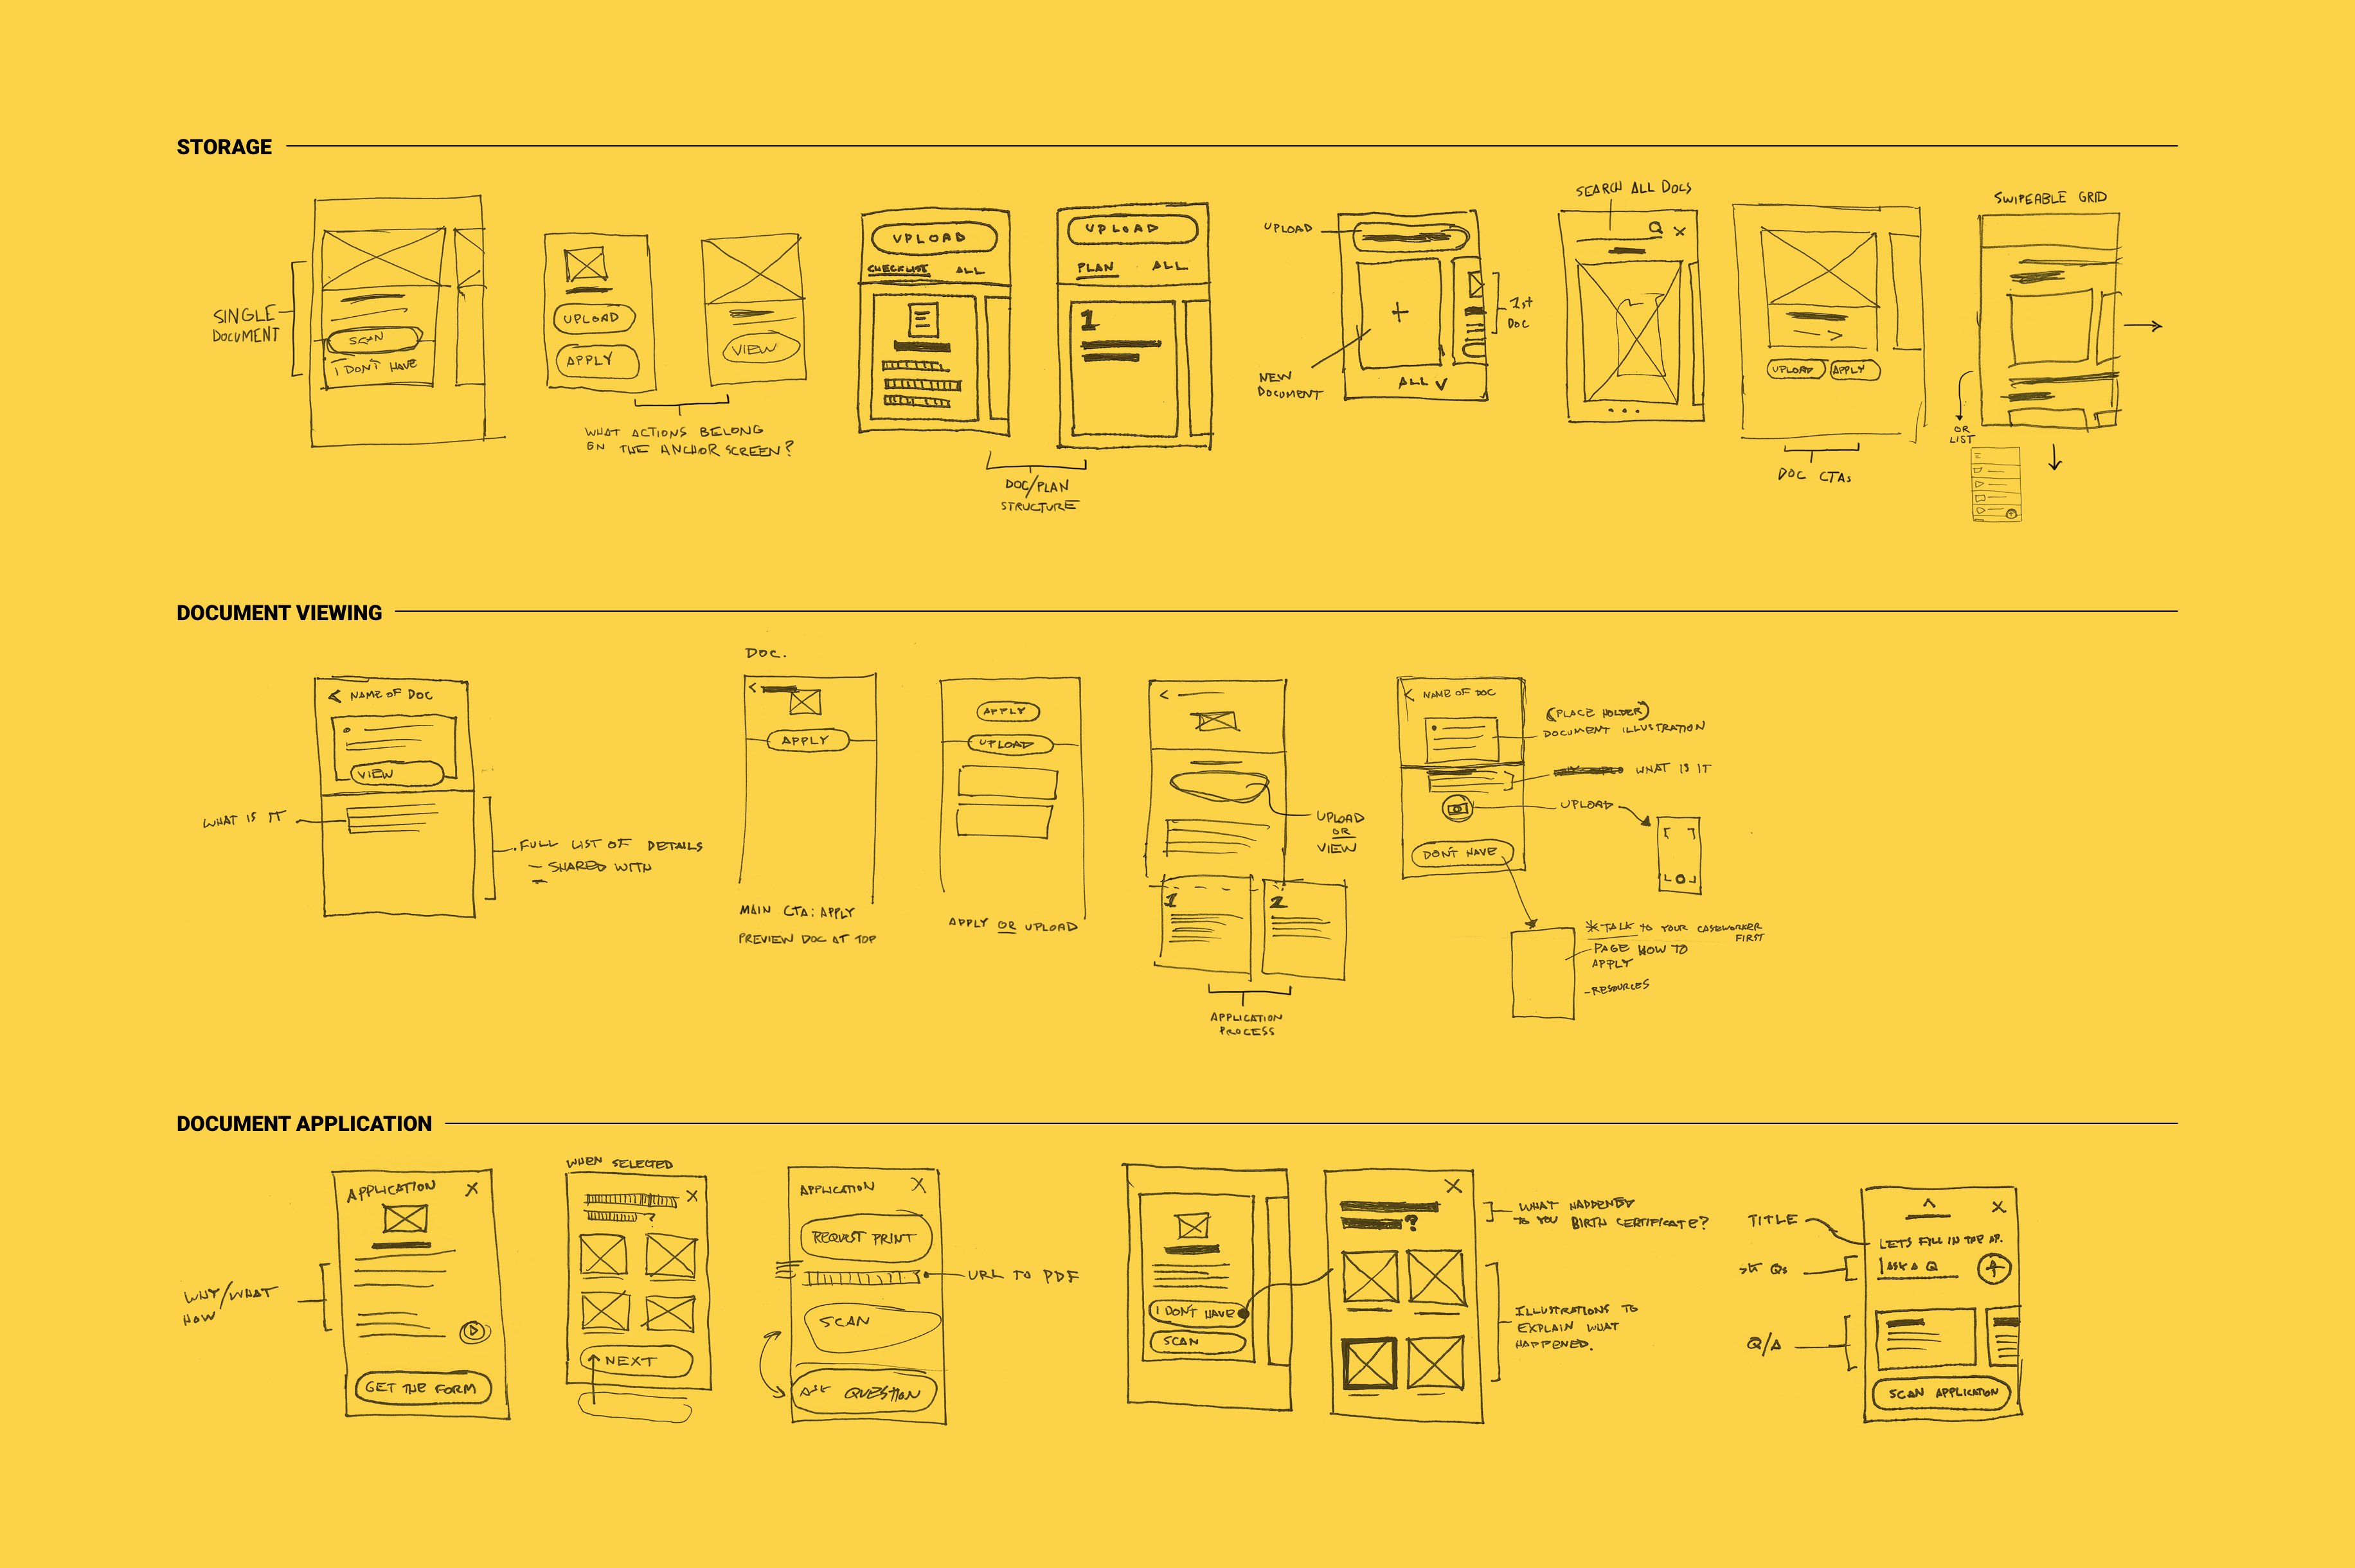 STORAGE
SINGLE
DOCUMENT
SCAN
I DON'T HAVE
UPLOAD
APPLY
VIEW
WHAT ACTIONS BELONG
ON THE ANCHOR SCREEN?
UPLOAD
CHECKLIST ALL
UPLOAD
PLAN ALL
DOC/PLAN
STRUCTURE
UPLOAD
+
1st
DOC
NEW
DOCUMENT
ALL
SEARCH ALL DOCS
X
UPLOAD APPLY
DOC CTAs
SWIPEABLE GRID
OR
LIST
1
DOCUMENT VIEWING
< NAME OF DOC
VIEW
WHAT IS IT
FULL LIST OF DETAILS
- SHARED WITH
-
DOC.
<
APPLY
MAIN CTA: APPLY
PREVIEW DOC AT TOP
APPLY
UPLOAD
APPLY OR UPLOAD
<
UPLOAD
OR
VIEW
1
2
APPLICATION
PROCESS
< NAME OF DOC
(PLACE HOLDER)
DOCUMENT ILLUSTRATION
WHAT IS IT
UPLOAD
DON'T HAVE
*TALK TO YOUR CASEWORKER
FIRST
PAGE HOW TO
APPLY
-RESOURCES
DOCUMENT APPLICATION
APPLICATION X
WHY/WHAT
HOW
GET THE FORM
WHEN SELECTED
X
?
NEXT
APPLICATION X
REQUEST PRINT
URL TO PDF
SCAN
ASK QUESTION
I DON'T HAVE
SCAN
X
?
WHAT HAPPENED
TO YOU BIRTH CERTIFICATE?
ILLUSTRATIONS TO
EXPLAIN WHAT
HAPPENED.
TITLE
X
LETS FILL IN THE AP.
ASK A Q
Qs
Q/A
SCAN APPLICATION